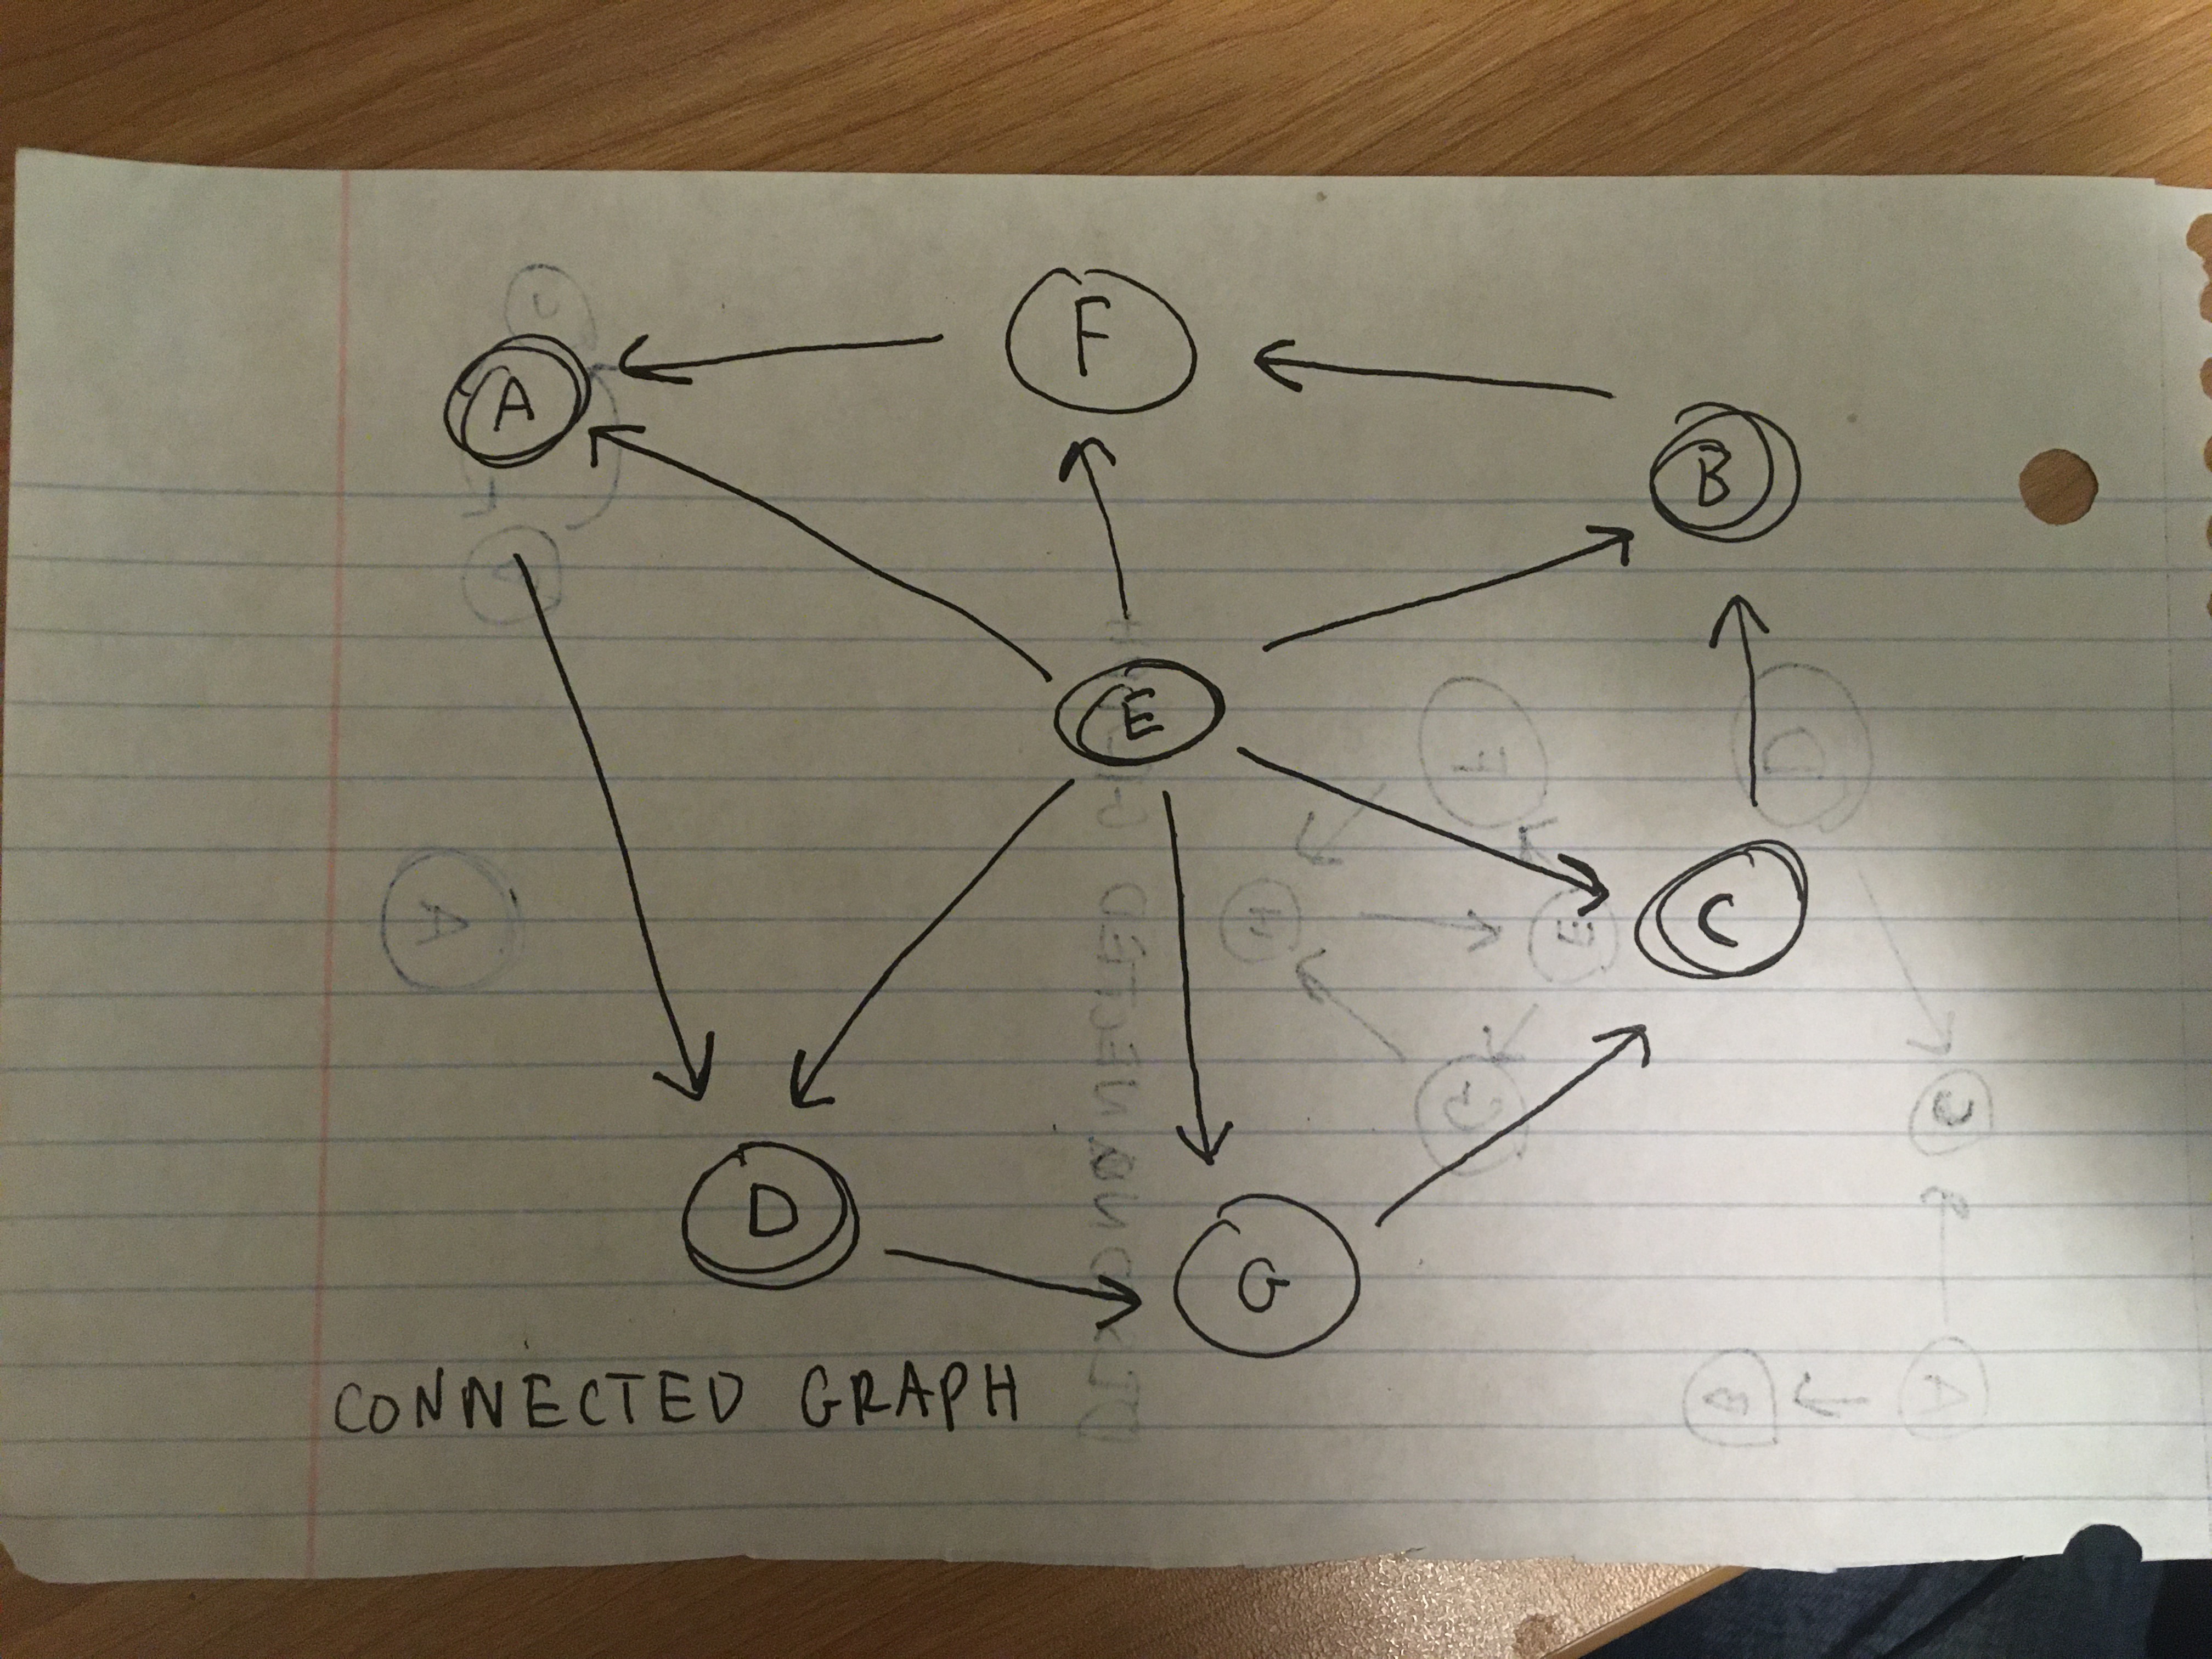 F
A
B
E
C
D
G
CONNECTED GRAPH